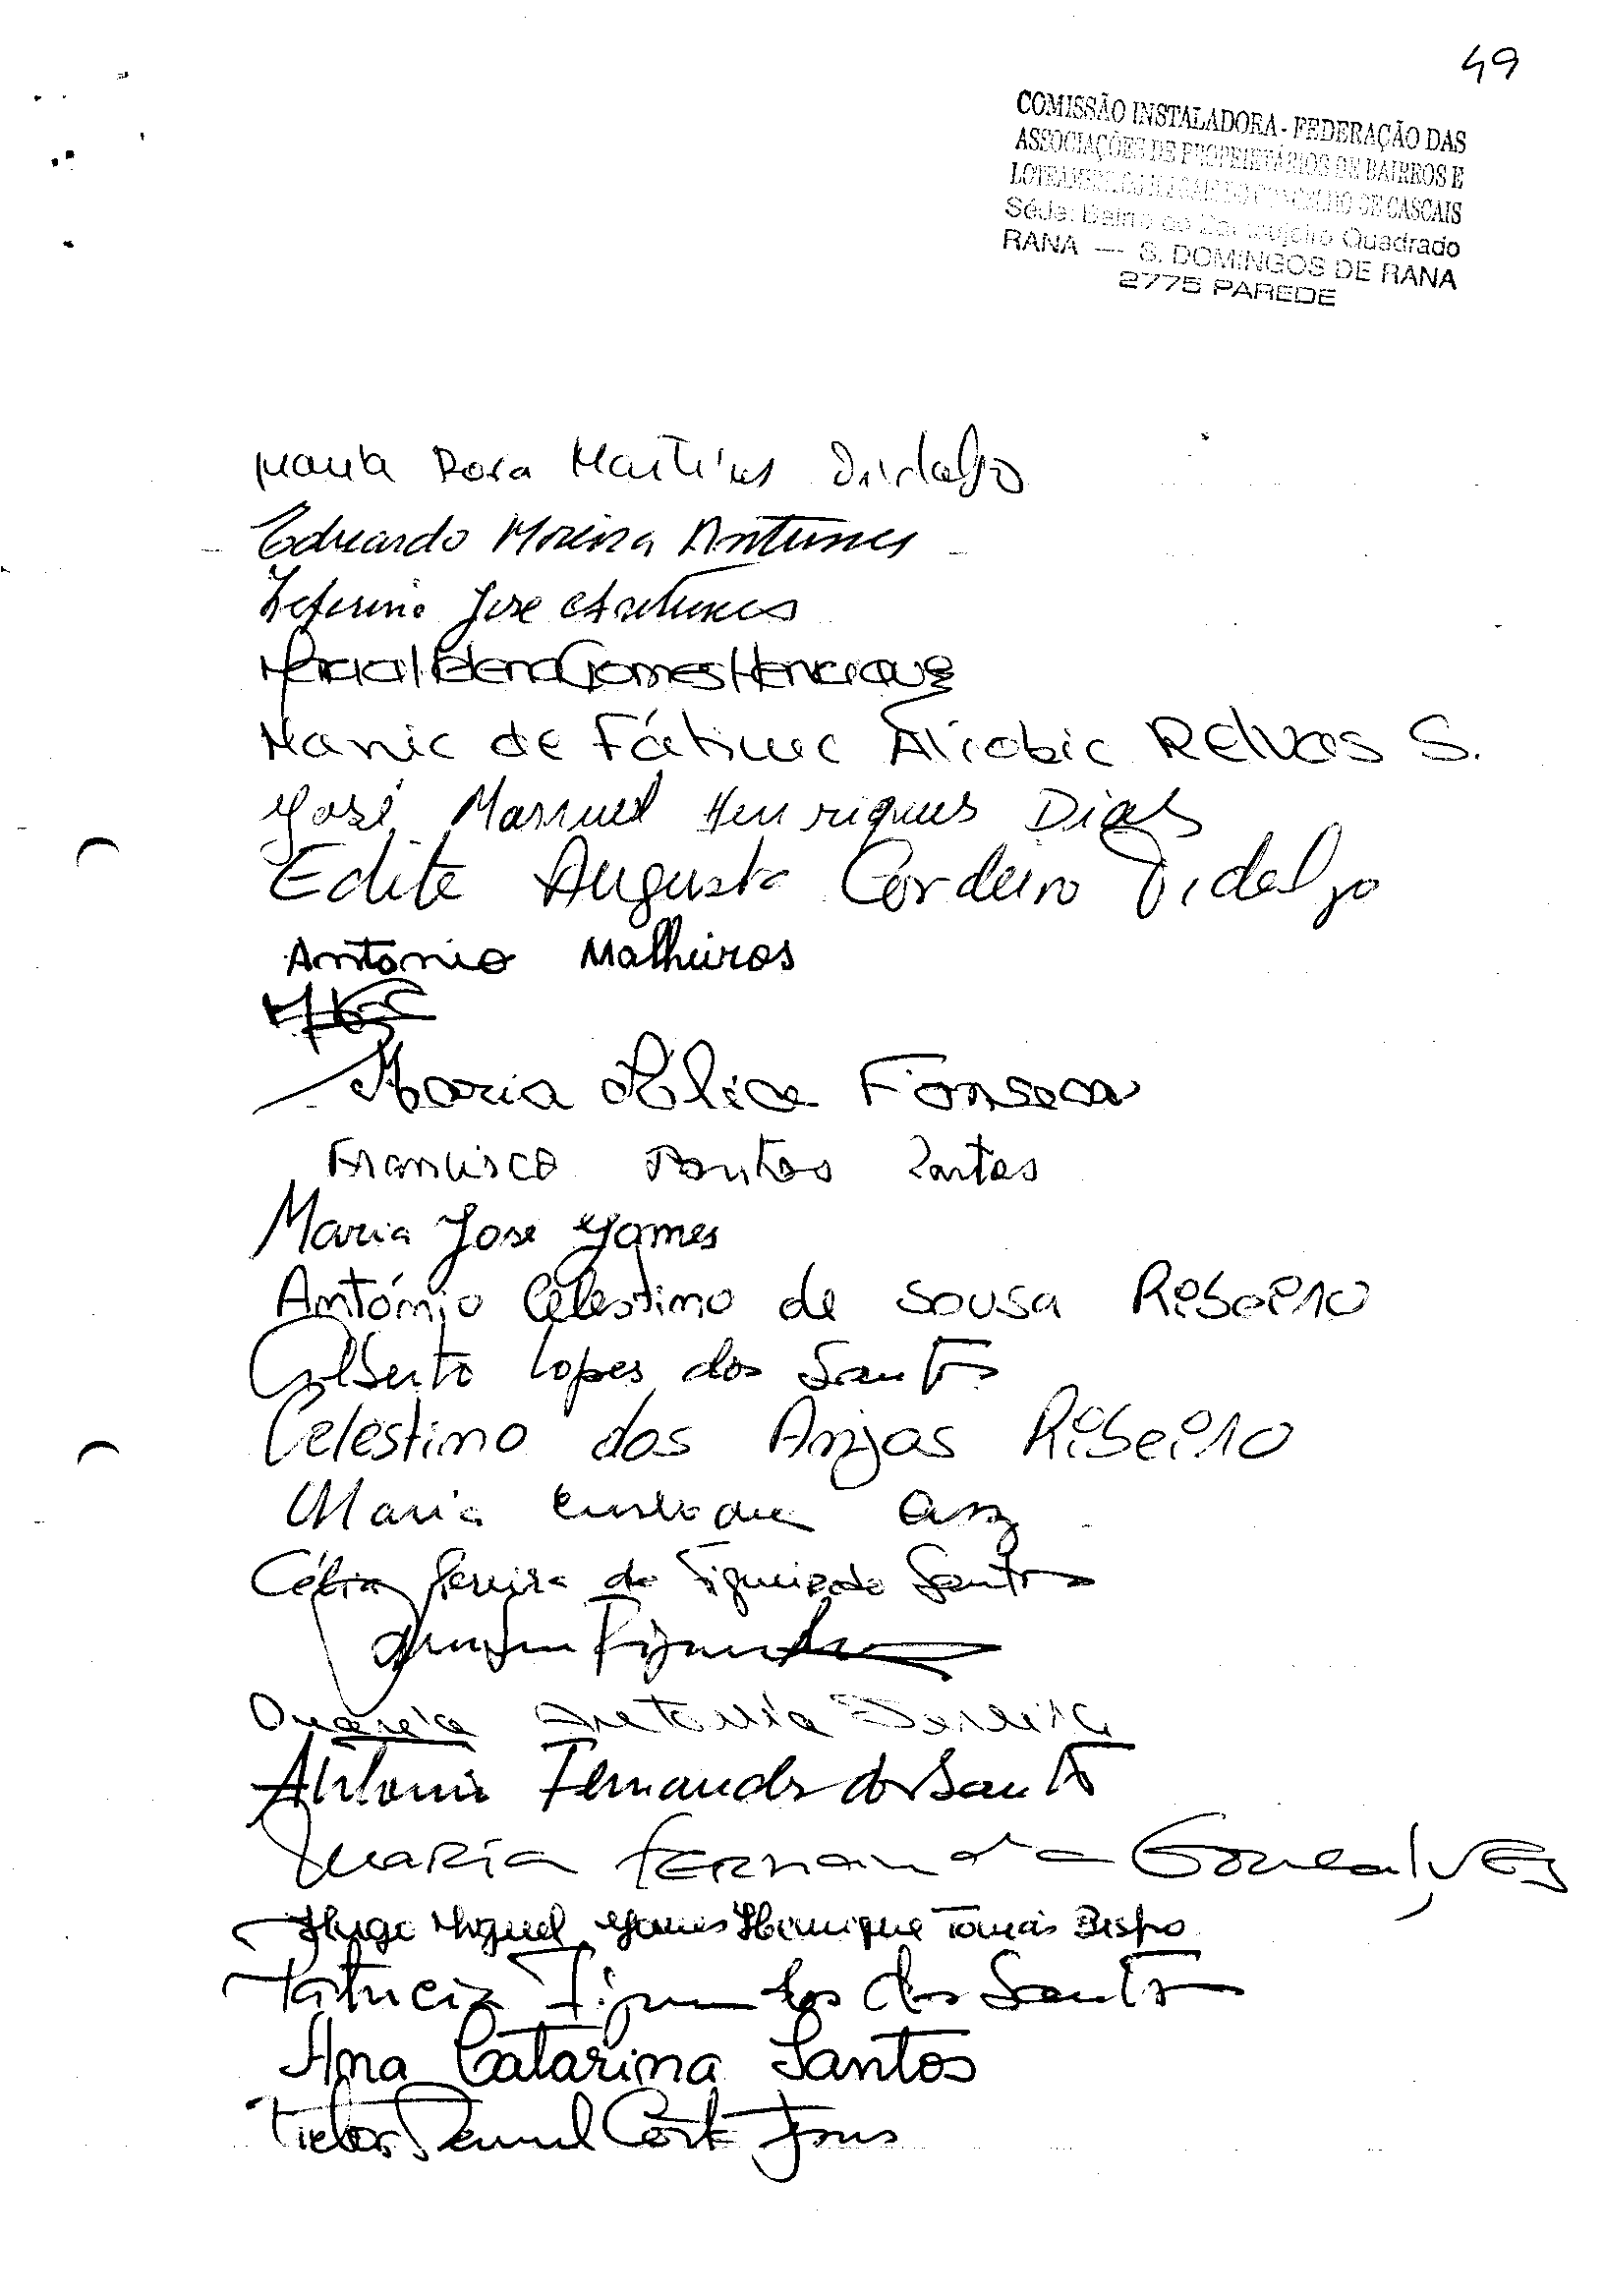 49
COMISSÃO INSTALADORA - FEDERAÇÃO DAS
ASSOCIAÇÕES DE PROPRIETÁRIOS DE BAIRROS E
LOTEAMENTOS ILEGAIS DO CONCELHO DE CASCAIS
Séde: Bairro do Quadrado
RANA — S. DOMINGOS DE RANA
2775 PAREDE
Maria Rosa Martins
Eduardo Moreira Antunes
Zeferino Jose Antunes
Gomes Henrique
Maria de Fátima Relvas S.
José Manuel Henriques Dias
Edite Augusta Cordeiro Fidalgo
Antonio Malheiros
Maria Alice Fonseca
Francisco Santos
Maria Jose Gomes
António Celestino de Sousa Ribeiro
Alberto Lopes dos Santos
Celestino dos Anjos Ribeiro
Maria
Célia Pereira de Figueiredo Santos
Maria Antonia
Antonio Fernandes dos Santos
Maria Fernanda Gonçalves
Hugo Miguel Gomes Henrique Tomás Bispo
Patricia dos Santos
Ana Catarina Santos
Victor Manuel Costa Jesus